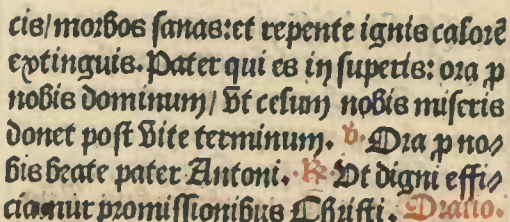 cis/ morbos sanas: et repente ignis calorē
extinguis. Pater qui es in superis: ora ꝓ
nobis dominum/ vt celum nobis miseris
donet post vite terminum. ℣. Ora ꝓ no⸗
bis beate pater Antoni. ℟. Vt digni effi⸗
ciamur promissionibus Christi. Oratio.